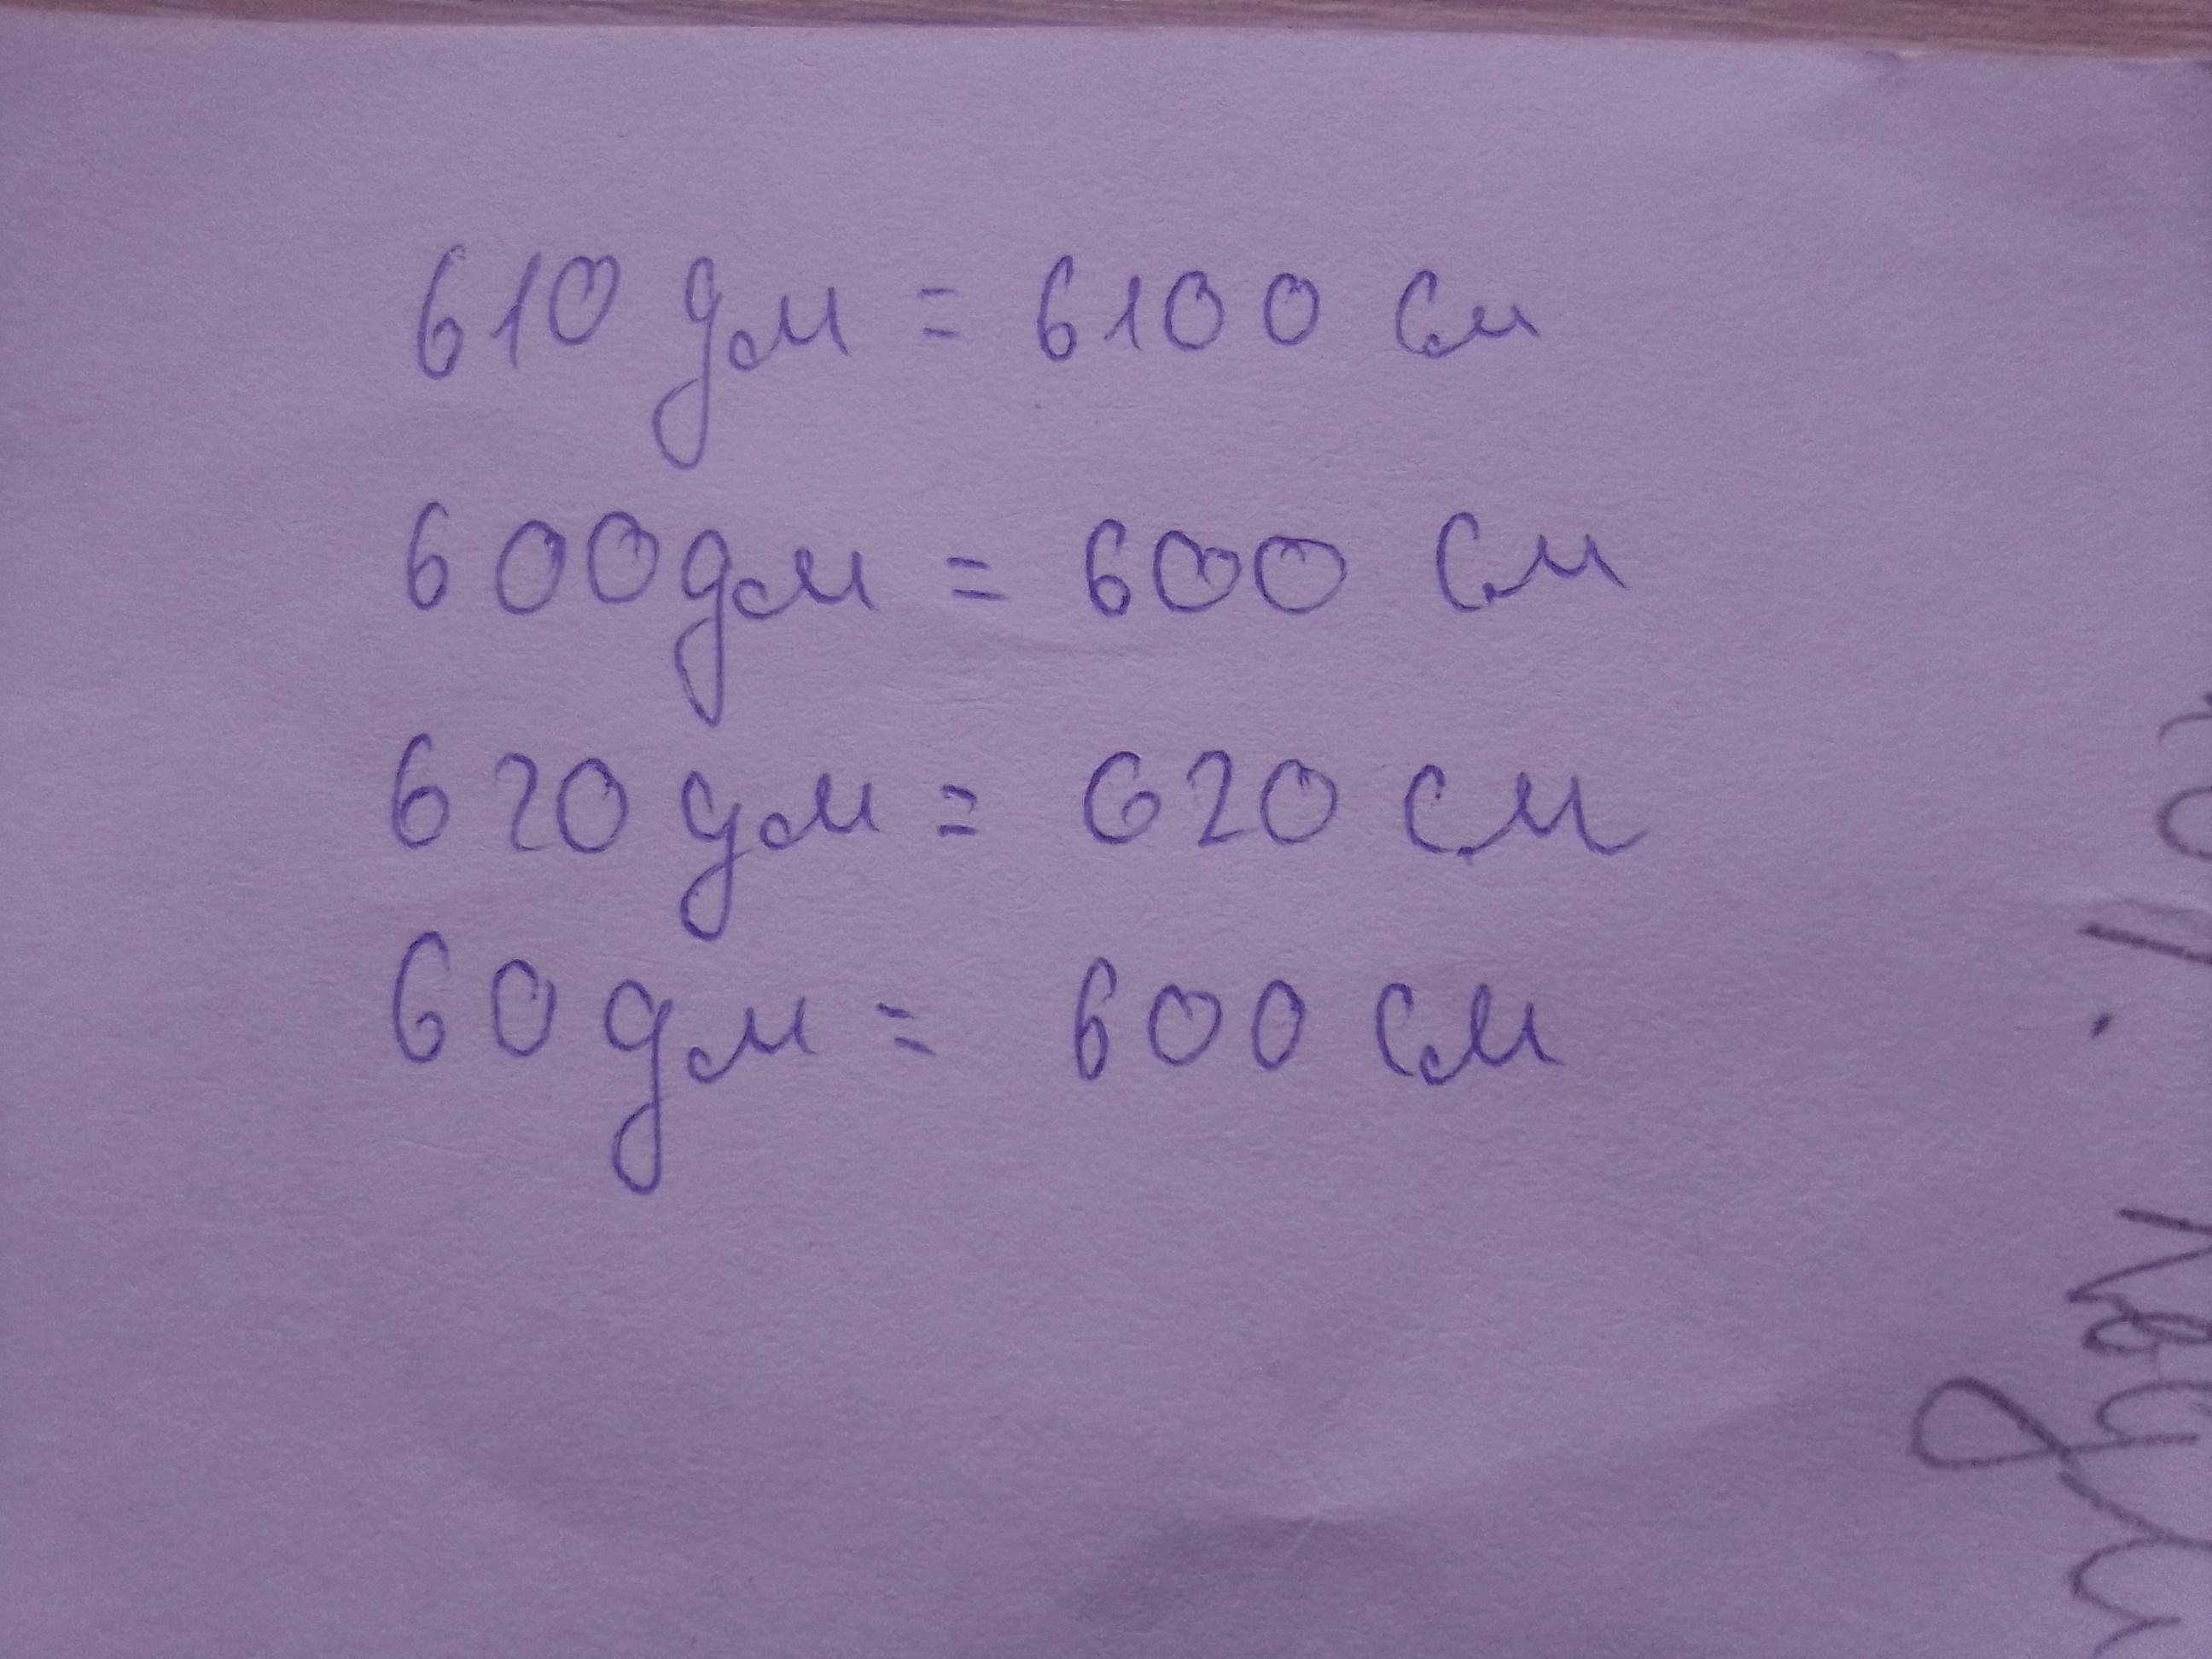 610 дм = 6100 см
600 дм = 600 см
620 дм = 620 см
60 дм = 600 см